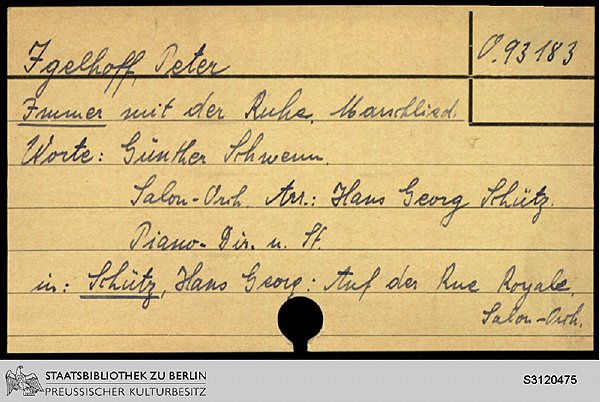 Igelhoff, Peter
O. 93183
Immer mit der Ruhe. Marschlied.
Worte: Günther Schwenn.
Salon-Orch. Arr.: Hans Georg Schütz.
Piano-Dir. u. St.
in: Schütz, Hans Georg: Auf der Rue Royale.
Salon-Orch.
STAATSBIBLIOTHEK ZU BERLIN
PREUSSISCHER KULTURBESITZ
S3120475